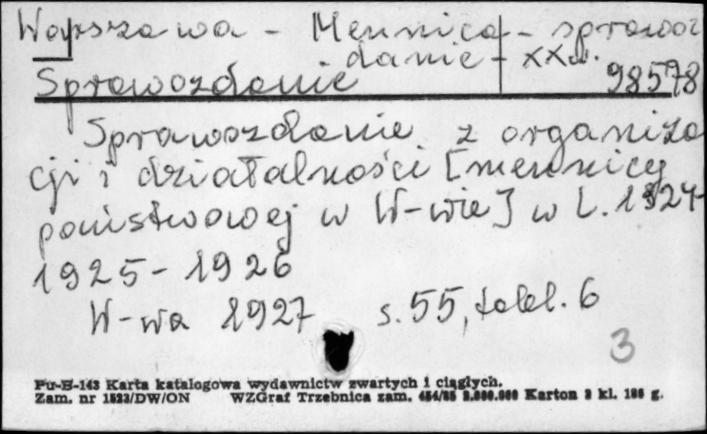 Warszawa - Mennica - sprawoz
danie - XXw.
Sprawozdanie 98578
Sprawozdanie z organiza
cji i działalności [mennicy
państwowej w W-wie] w l. 1924-
1925-1926
W-wa 1927 s. 55, tabl. 6
3
Pu-B-143 Karta katalogowa wydawnictw zwartych i ciągłych.
Zam. nr 1523/DW/ON WZGraf Trzebnica zam. Karton 3 kl. g.